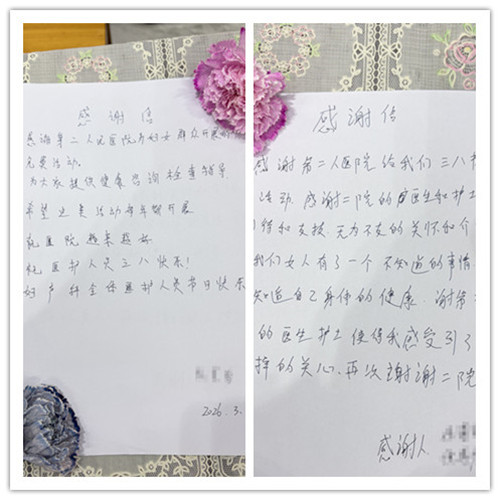 感谢信
感谢第二人民医院为妇女群众开展的
免费活动。
为大家提供健康咨询检查辅导
希望这类活动每年都开展
祝医院越来越好
祝医护人员三八快乐!
妇产科全体医护人员节日快乐
2026.3.
感谢信
感谢第二人医院给我们三八
活动.感谢二院的医生和护士
情和支援.无为不至的关怀和介
我们女人有了一个不知道的事情
知道自己身体的健康.谢第
的医生护士使得我感受到了
样的关心.再次谢谢二院
感谢人